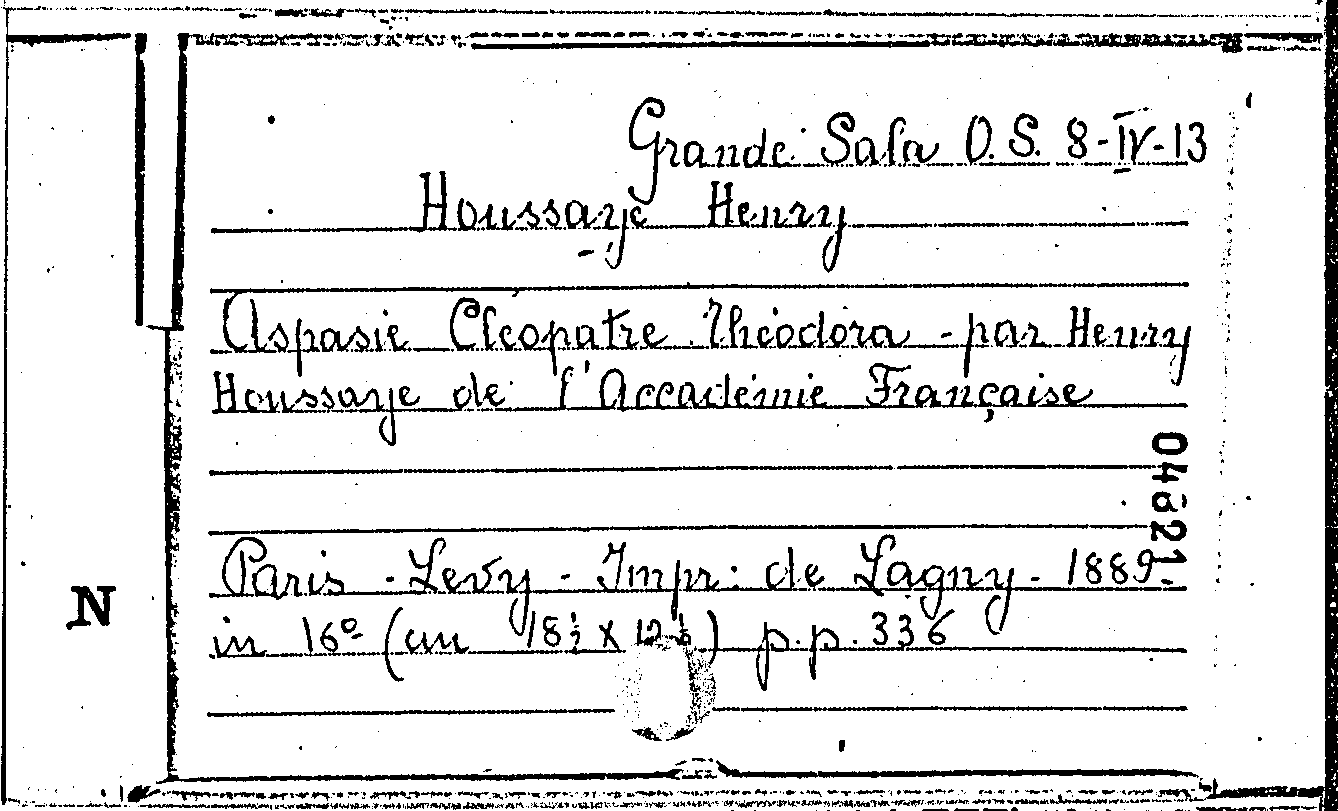 Grande Sala O. S. 8-IV-13
Houssaye Henry
Aspasie Cléopatre Théodora - par Henry
Houssaye de l'Accadémie Française
Paris - Levy - Impr: de Lagny - 1889.
in 16º (cm 18½ x 12½) p.p. 336
N